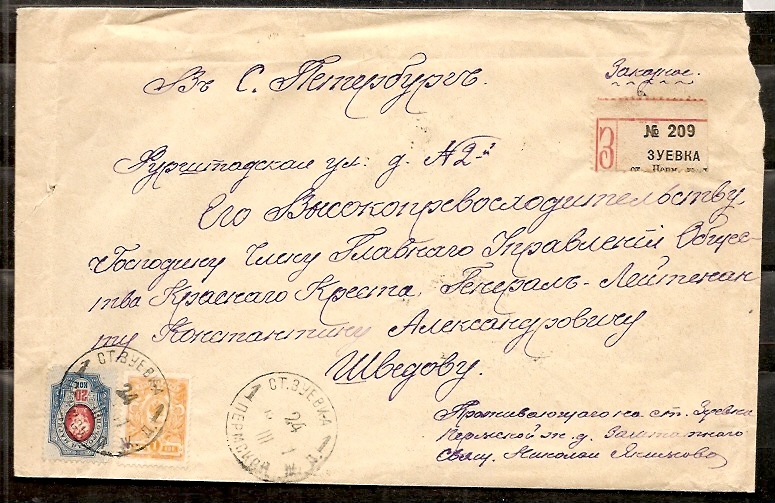 Въ С. Петербургъ.
Заказное.
З
№ 209
ЗУЕВКА
Фурштадская ул. д. № 2-й
Его Высокопревосходительству
Господину Члену Главнаго Управленія Общес-
тва Краснаго Креста, Генералъ-Лейтенан
ту Константину Александровичу
Шведову.
СТ. ЗУЕВКА
24
СТ. ЗУЕВКА
24
Проживающаго на ст. Зуевка
ж. д. Заштатного
Свящ. Николая